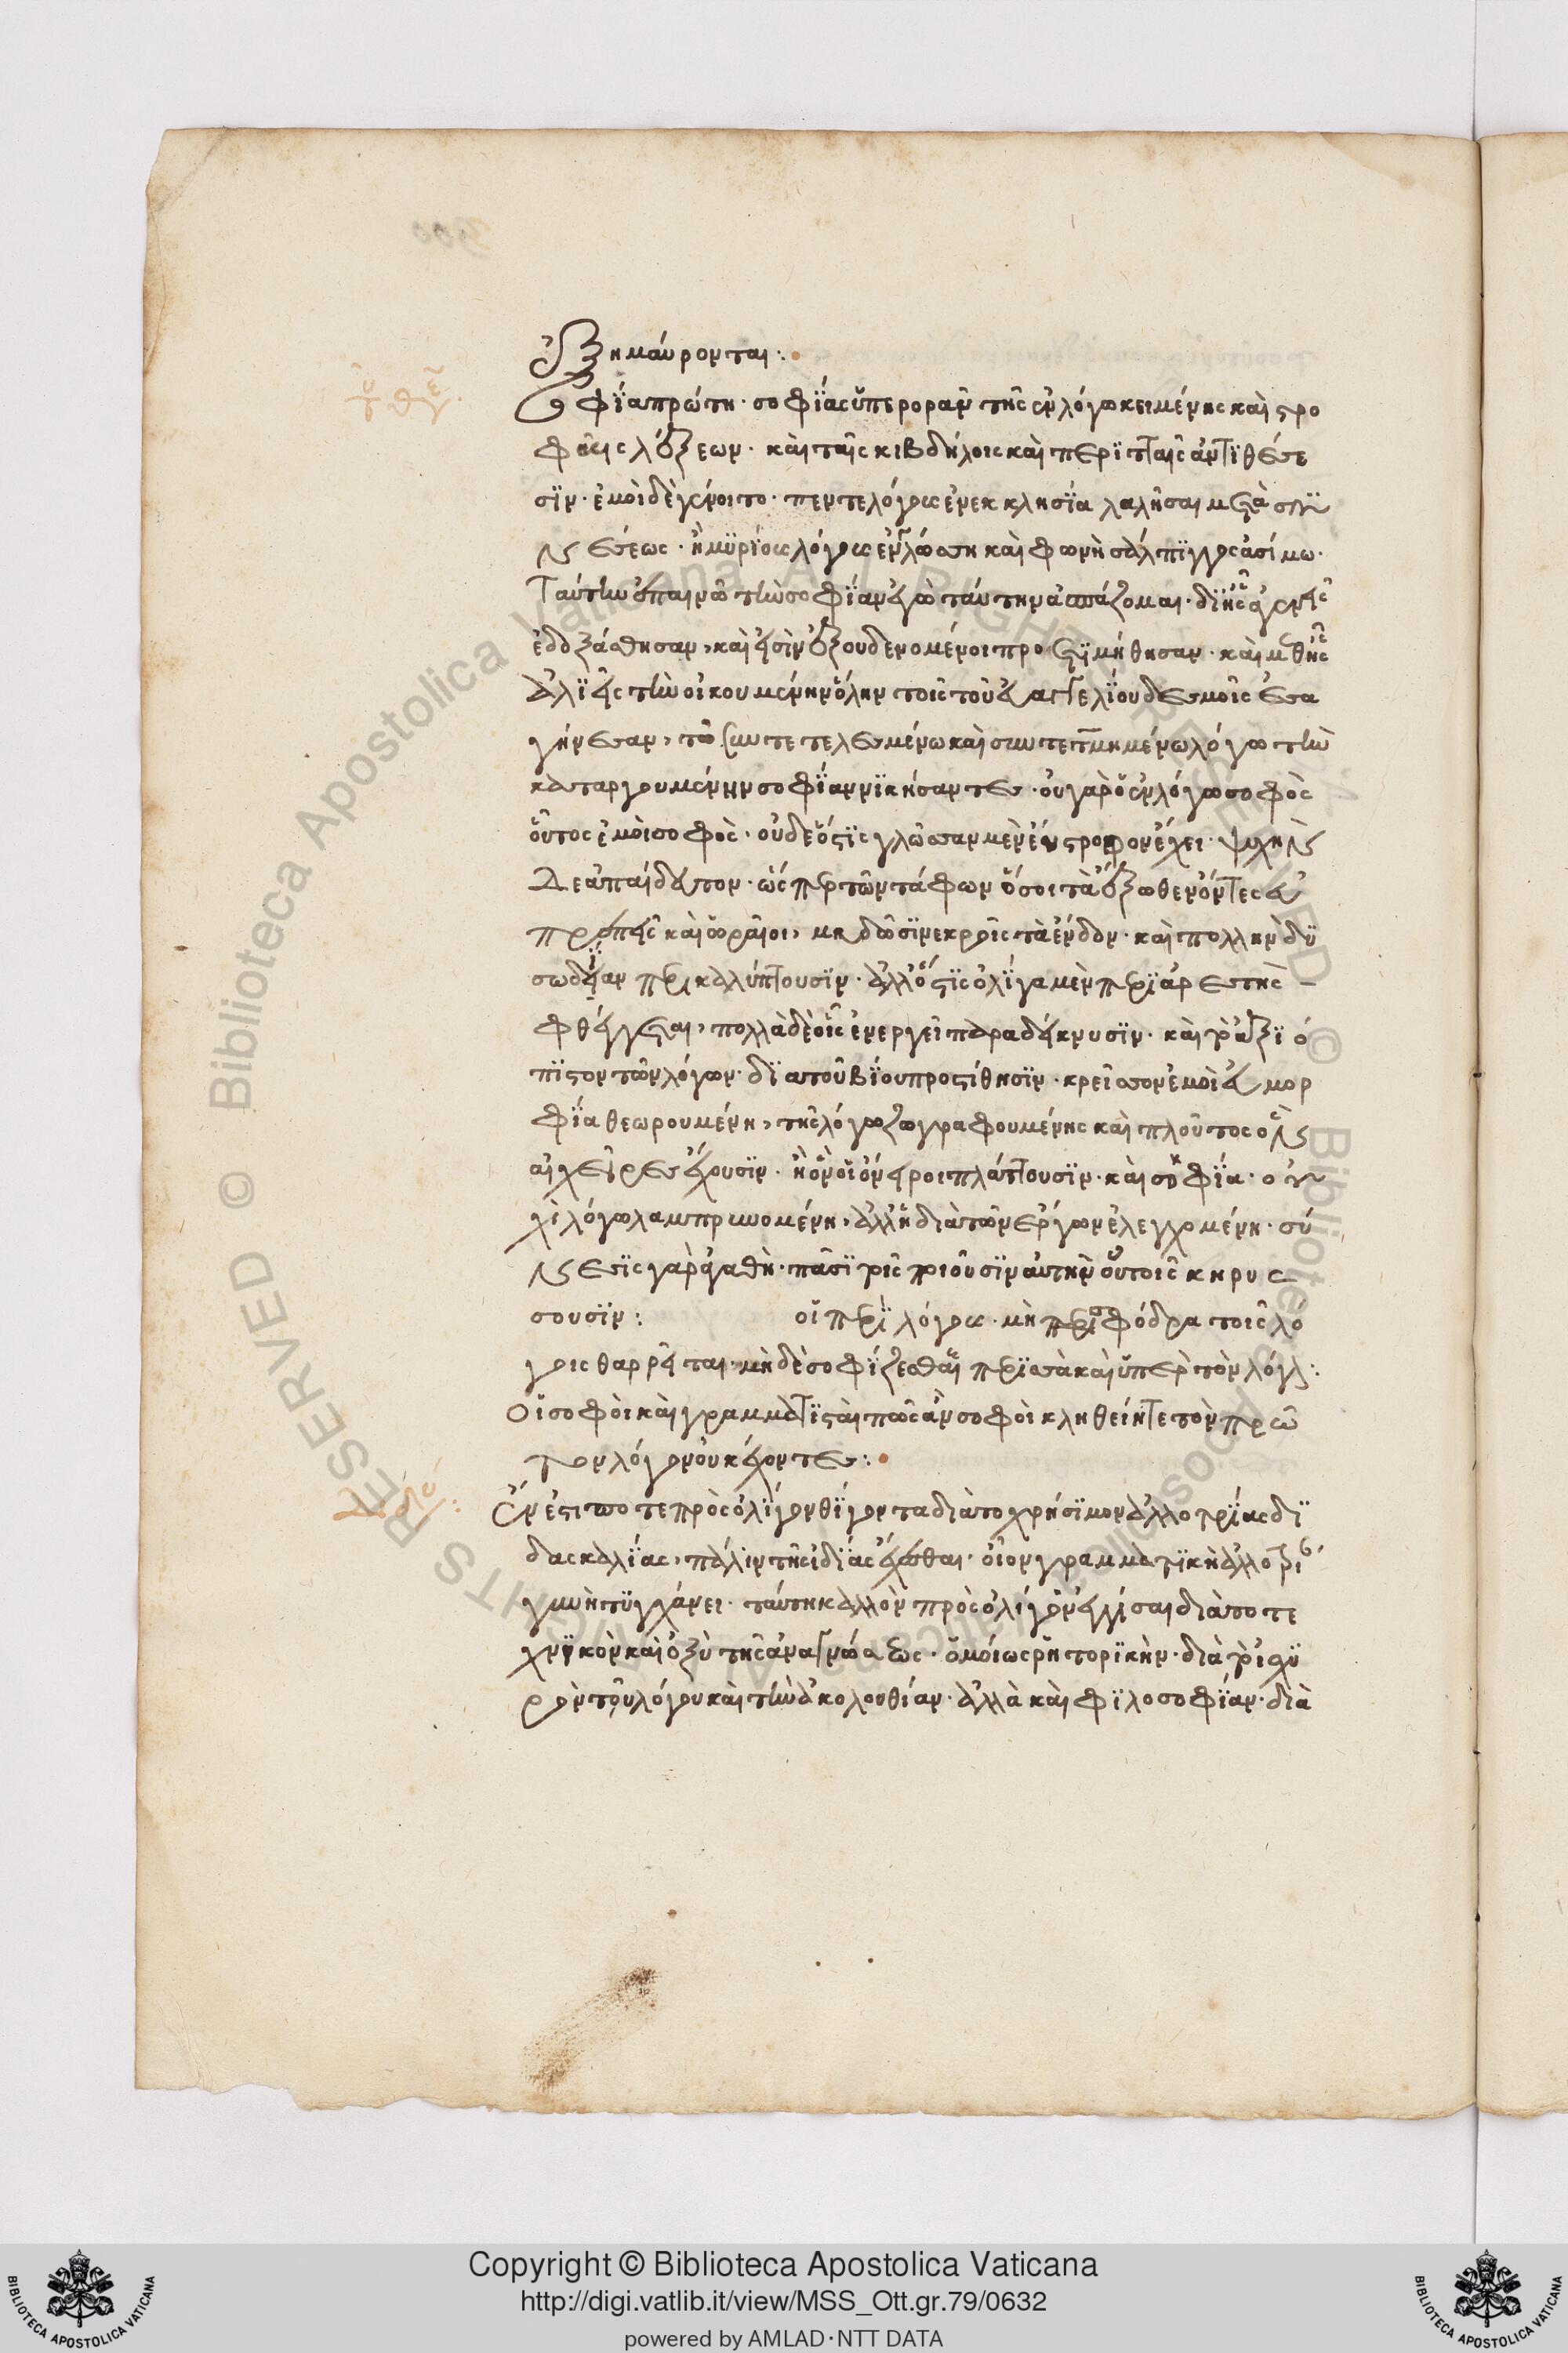 ἐξημαύρονται :
Σοφΐα πρώτη · σοφΐας ὕπερορᾶν τῆς ἐν λόγω κειμένης καὶ στρο
φαῖς λέξεων · καὶ ταῖς κιβδήλοις καὶ περϊτταῖς ἀντϊθέσε
σϊν · ἐμοὶ δὲ γένοιτο · πεντε λόγους ἐν εκκλησΐα λαλῆσαι μετὰ συ
νέσεως · ἢ μϋρΐους λόγους ἐν γλώσση καὶ φωνὴ σάλπϊγγος ἀσίμω ·
Ταύτην ἐπαινῶ τὴν σοφΐαν ἐγὼ ταύτην ἀσπάζομαι · δϊ ἧς ἀγενεῖς
ἐδοξάσθησαν, καὶ εἰσὶν ἐξουδενομένοι προετϊμήθησαν · καὶ μεθ ἧς
ἁλϊεῖς τὴν οἰκουμένην ὅλην τοῖς τοῦ εὐαγγελΐου δεσμοῖς ἐσα
γήνευσαν, τῶ συντετελεσμένω καὶ συντετμημένω λόγω τὴν
καταργουμένην σοφΐαν νϊκήσαντες · οὐ γὰρ ὁ ἐν λόγω σοφὸς
οὗτος ἐμοὶ σοφὸς · οὐδε ὅστϊς γλῶσσαν μὲν εὔστροφον ἔχει · ψυχὴν
δε ἀπαίδευτον · ὡς περ τῶν τάφων ὅσοι τὰ ἔξωθεν ὄντες εὐ
πρεπεῖς καὶ ὡραῖοι, μυδῶσϊ νεκροῖς τὰ ἔνδον · καὶ πολλὴν δϋ
σωδΐαν περικαλύπτουσϊν · ἀλλ ὅστϊς ὀλΐγα μὲν περϊ ἀρετῆς
φθέγγεται, πολλὰ δὲ οἷς ἐνεργεῖ παραδείκνυσϊν · καὶ τὸ ἀξϊό
πϊστον τῶν λόγων · δϊα τοῦ βΐου προστίθησϊν · κρεῖσσον ἐμοὶ εὐμορ
φΐα θεωρουμένη, τῆς λόγω ζωγραφουμένης καὶ πλοῦτος ὃν
αἱ χεῖρες ἔχουσϊν · ἢ ὃν οἱ ὄνειροι πλάττουσϊν · καὶ σοφΐα · οὐ
χὶ λόγω λαμπρυνομένη, ἀλλ ἡ διὰ τῶν ἔργων ἐλεγχομένη · σύ
νεσϊς γὰρ ἀγαθὴ · πᾶσϊ τοῖς ποιοῦσϊν αὐτὴν οὐ τοῖς κηρυσ
σουσϊν : οἵ περϊ λόγους · μὴ περϊ σφόδρα τοῖς λό
γοις θαρρεῖται · μὴ δὲ σοφΐζεσθαι περϊσσὰ καὶ ὕπερ τὸν λόγον :
Οἵ σοφοὶ καὶ γραμματϊσταὶ πῶς ἂν σοφοὶ κληθείητε τὸν πρῶ
τον λόγον οὐκ ἔχοντες :
Ὅν ἔστι ποτε πρὸς ὀλΐγον θΐγοντα διὰ το χρήσϊμον ἀλλοτρΐας δϊ
δασκαλΐας, πάλϊν τῆς ἰδΐας ἔχεσθαι · οἷον γραμματϊκὴ ἀλλο τρι
γμὴ τϋγχάνει · ταύτη καλλὸν πρὸς ὀλίγον ἐγγίσαι διὰ το τε
χνϊκὸν καὶ ὀξὺ τῆς ἀναγνώσεως · ὅμοίως ῥητορϊκὴν · διὰ τὸ ἰσχϋ
ρὸν τοῦ λόγου καὶ τὴν ἀκολουθίαν · ἀλλὰ καὶ φϊλοσοφΐαν · διὰ
Copyright © Biblioteca Apostolica Vaticana
http://digi.vatlib.it/view/MSS_Ott.gr.79/0632
powered by AMLAD·NTT DATA